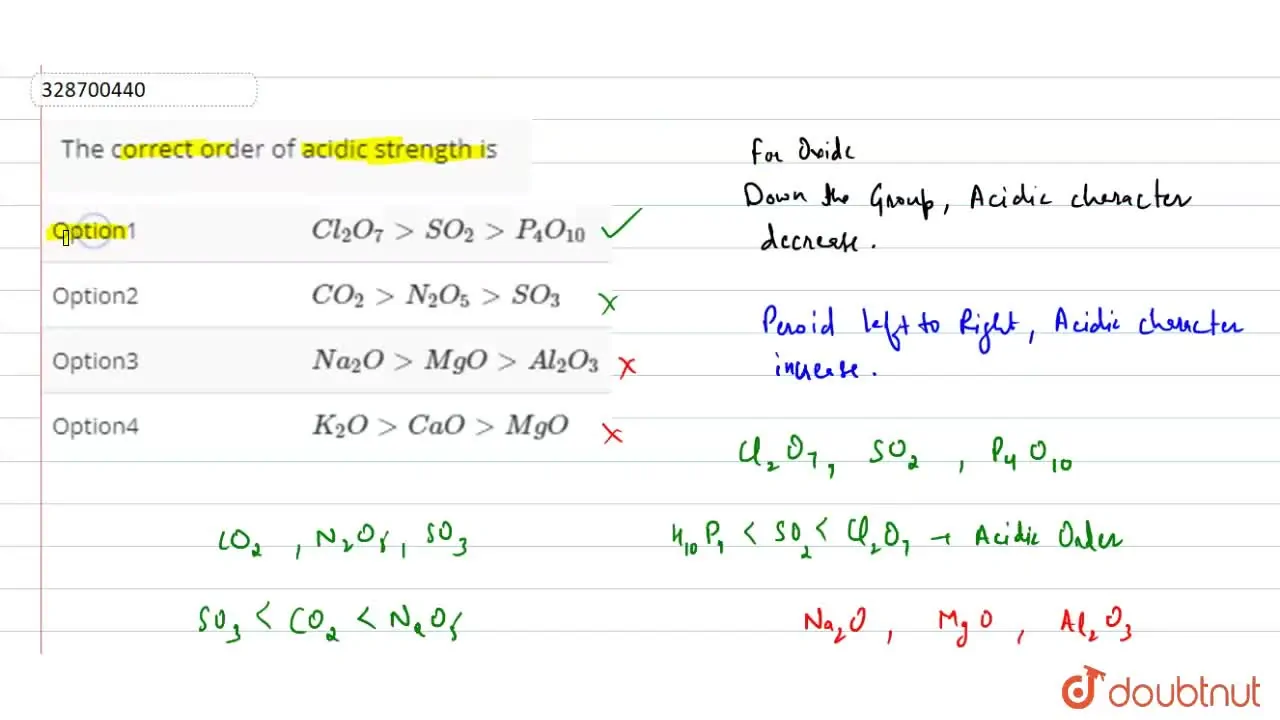 328700440
The correct order of acidic strength is
Option1 Cl₂O₇ > SO₂ > P₄O₁₀ ✓
Option2 CO₂ > N₂O₅ > SO₃ ×
Option3 Na₂O > MgO > Al₂O₃ ×
Option4 K₂O > CaO > MgO ×
For Oxide
Down the Group, Acidic character
decrease.
Peroid left to Right, Acidic character
increase.
Cl₂O₇, SO₂, P₄O₁₀
CO₂, N₂O₅, SO₃
SO₃ < CO₂ < N₂O₅
P₄ < SO₂ < Cl₂O₇ → Acidic Order
Na₂O, MgO, Al₂O₃
doubtnut